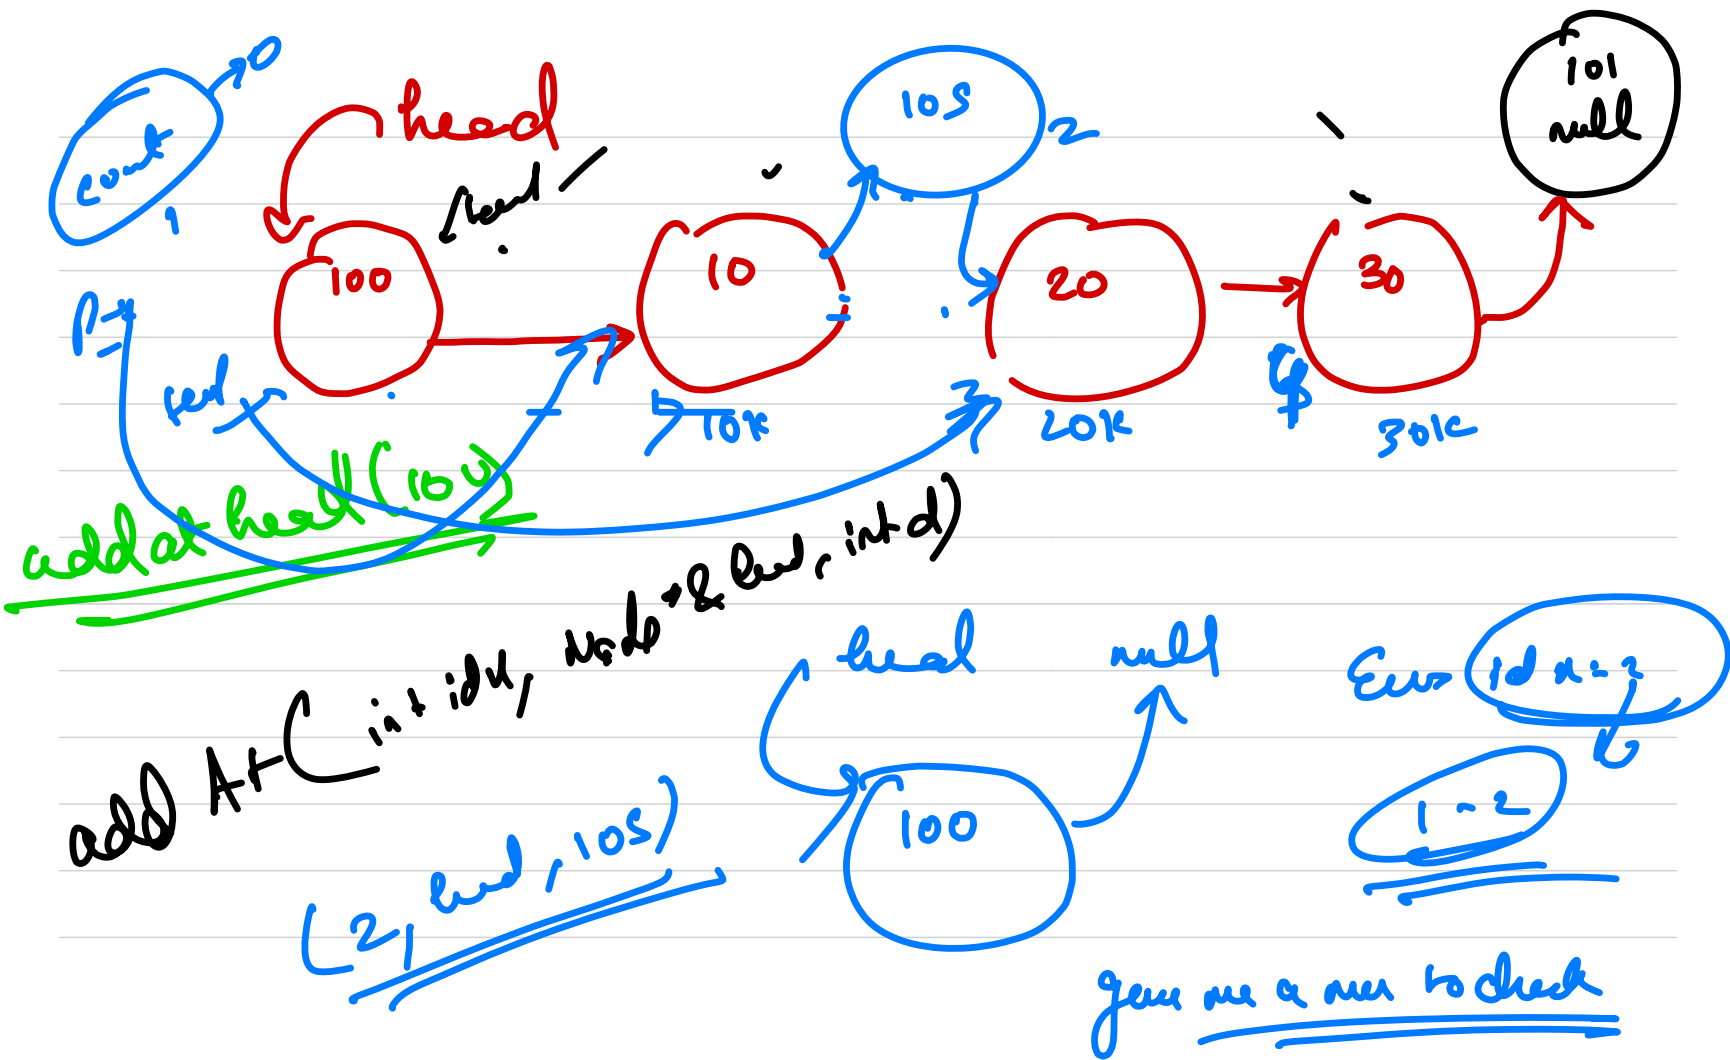 0
count
1
head
head
105
2
101
null
100
10
20
30
10K
20K
30K
add at head (100)
add At (int idx, Node *& head, int d)
(2, head, 105)
head
null
100
idx - 2
1 - 2
give me a min to check